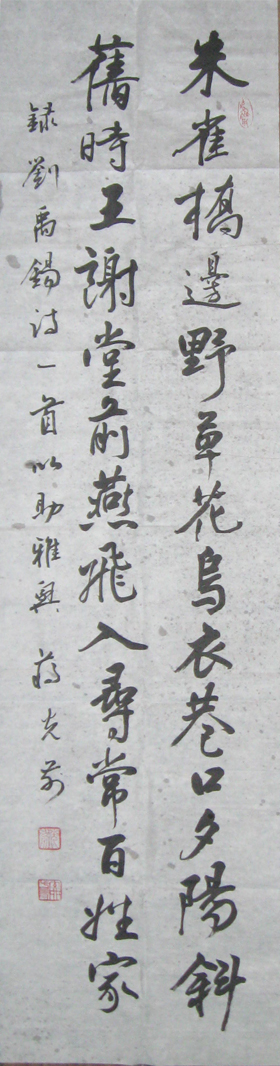 朱雀橋邊野草花烏衣巷口夕陽斜
舊時王謝堂前燕飛入尋常百姓家
録劉禹錫诗一首以助雅興 蔣克前